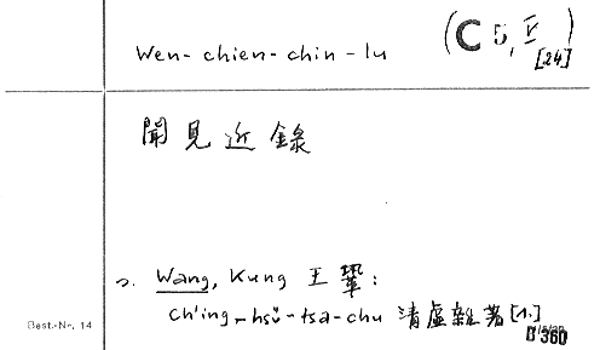 Wen-chien-chin-lu
(C 5, V)
[24]
聞見近錄
s. Wang, Kung 王鞏:
Ch'ing-hsü-tsa-chu 清虛雜著 [1.]
Best.-Nr. 14
B 360